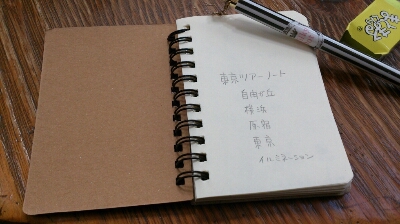 東京ツアーノート
自由が丘
横浜
原宿
東京
イルミネーション